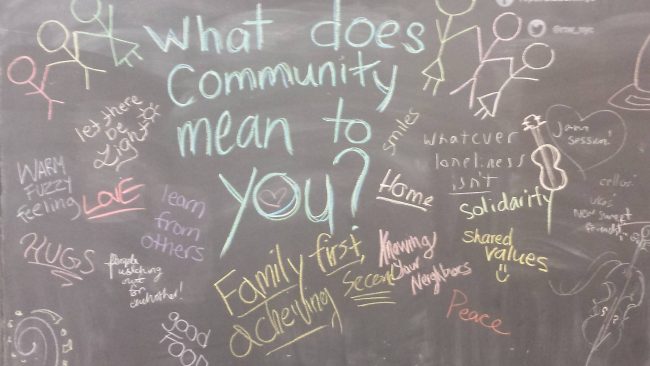 What does
Community
mean to
you?
let there
be
light
smiles
WARM
FUZZY
feeling
LOVE
learn
from
others
HUGS
people
watching
out
for
one another!
good
FOOD
Family first,
achieving
second
Home
Knowing
Your
Neighbors
whatever
loneliness
isn't
solidarity
shared
values
Peace
Jam
session!
cellos